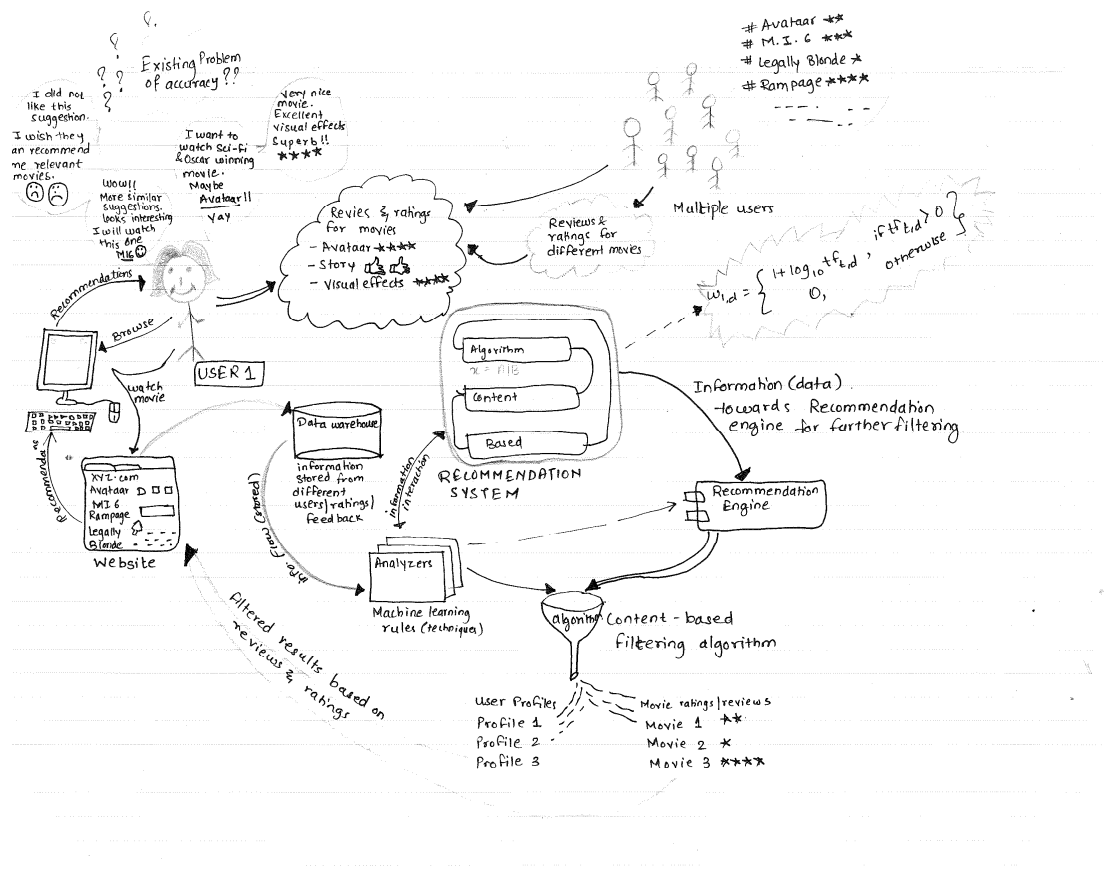 Existing Problem
of accuracy??
I did not
like this
suggestion.
I wish they
an recommend
me relevant
movies.
Wow!!
More similar
suggestions.
looks interesting
I will watch
this one
MI6
I want to
watch Sci-fi
& Oscar winning
movie.
Maybe
Avataar!!
Yay
Very nice
movie.
Excellent
visual effects
Superb!!
★★★★
# Avataar ★★
# M.I.6 ★★★
# Legally Blonde ★
# Rampage ★★★★
Multiple users
Reviews &
ratings for
different movies
Revies & ratings
for movies
- Avataar ★★★★
- Story 👍 👍
- Visual effects ★★★★
w₁,d = { 1 + log₁₀ tf t,d , if tf t,d > 0
0, otherwise }
Recommendations
Browse
USER 1
watch
movie
XYZ.com
Avataar
MI6
Rampage
Legally
Blonde
Website
Data warehouse
information
stored from
different
users/ratings/
feedback
info. flow (stored)
Information
interaction
Algorithm
Content
Based
RECOMMENDATION
SYSTEM
Information (data).
towards Recommendation
engine for farther filtering
Recommendation
Engine
Analyzers
Machine learning
rules (techniques)
algorithm
Content-based
filtering algorithm
filtered results based on
reviews & ratings
User Profiles
Profile 1
Profile 2
Profile 3
Movie ratings/reviews
Movie 1 ★★
Movie 2 ★
Movie 3 ★★★★